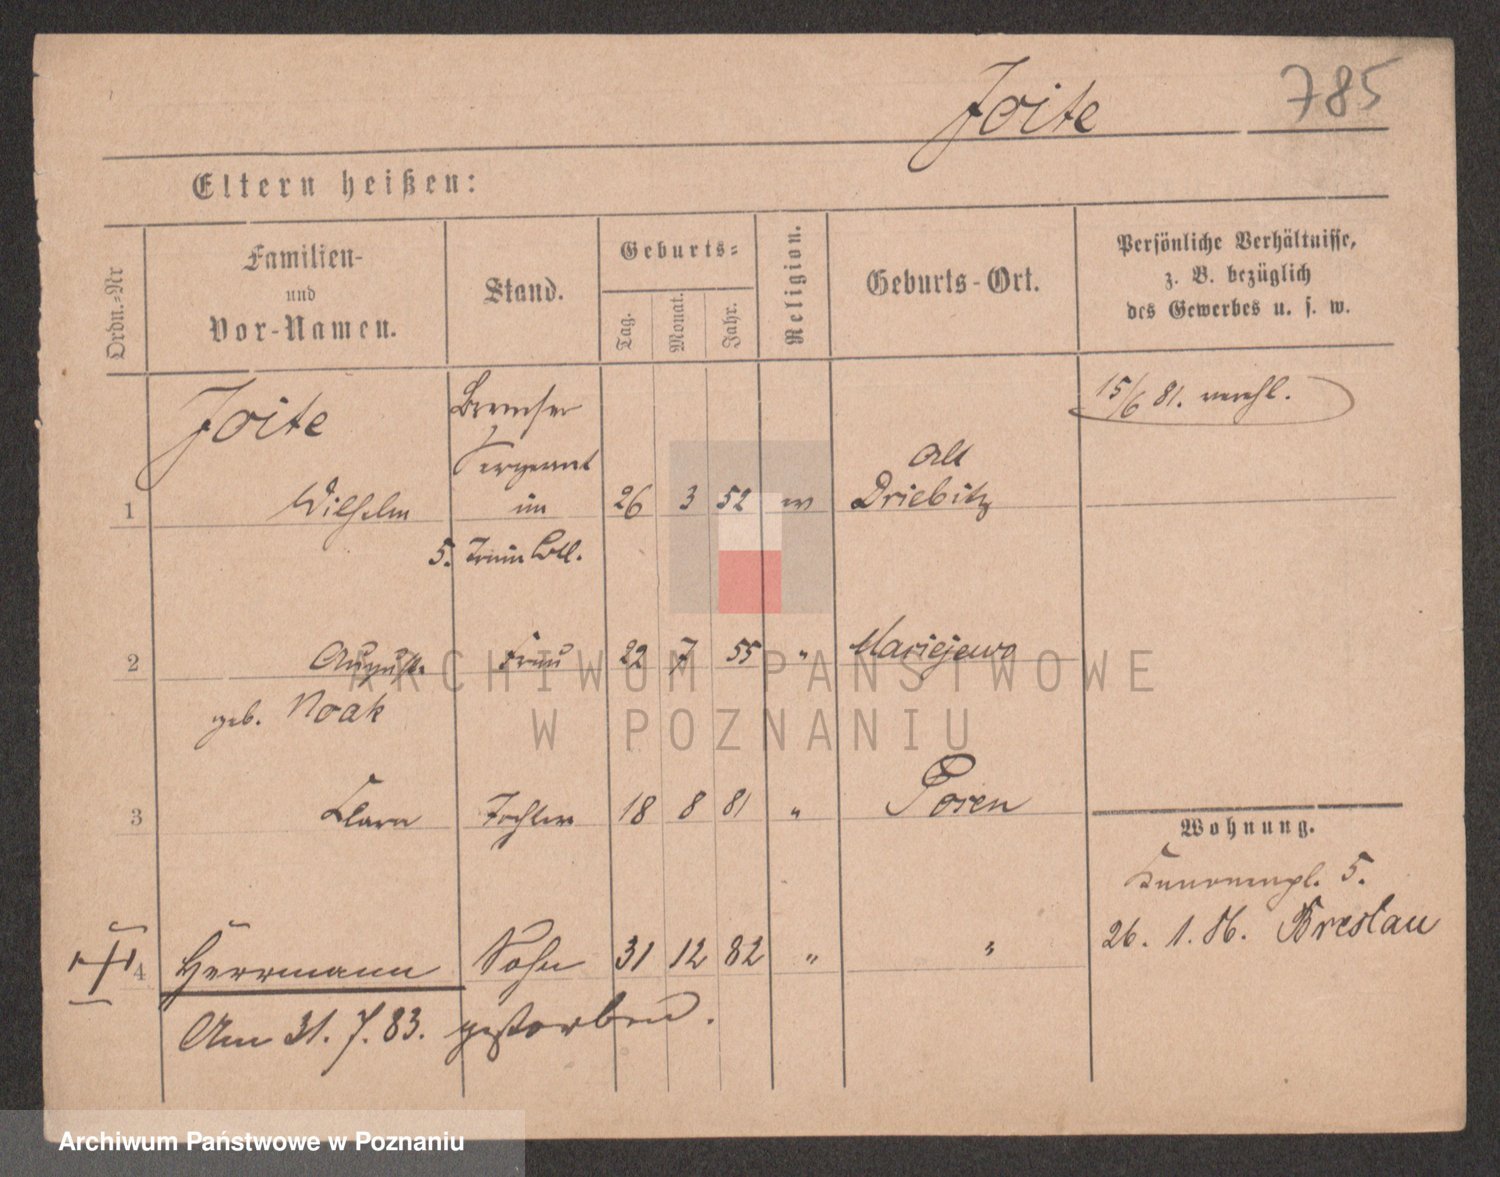 785
Joite
Eltern heißen:
Ordn.-Nr
Familien-
und
Vor-Namen.
Stand.
Geburts-
Tag.
Monat.
Jahr.
Religion.
Geburts-Ort.
Persönliche Verhältnisse,
z. B. bezüglich
des Gewerbes u. s. w.
Joite
Bremser
15/6 81. verehl.
Sergeant
Alt
1 Wilhelm im 26 3 52 ev Driebitz
5. Train Batl.
2 Auguste Frau 22 7 55 " Mariejewo
geb. Noak
3 Klara Tochter 18 8 81 " Posen
Wohnung.
5.
26. 1. 86. Breslau
4 Herrmann Sohn 31 12 82 " "
Am 31. 7. 83. gestorben.
ARCHIWUM PAŃSTWOWE
W POZNANIU
Archiwum Państwowe w Poznaniu